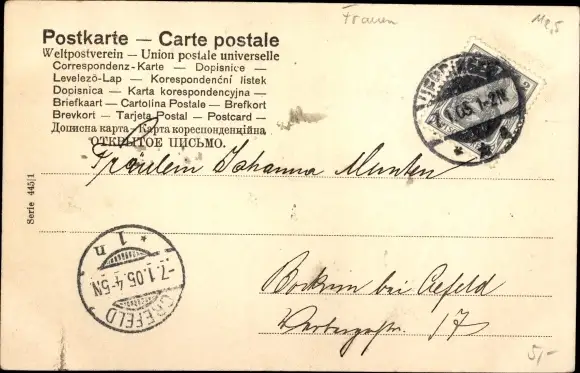 Frauen
Postkarte — Carte postale
Weltpostverein — Union postale universelle
Correspondenz-Karte — Dopisnice —
Levelezö-Lap — Korespondenční listek
Dopisnica — Karta korespondencyjna —
Briefkaart — Cartolina Postale — Brefkort
Brevkort — Tarjeta Postal — Postcard —
Дописна карта - Карта кореспонденційна
ОТКРЫТОЕ ПІСЬМО.
7.1.05 1-2N
2
Fräulein Johanna Munten
Serie 445|1
* 1 n
-7.1.05.4-5N
CREFELD
Bockum bei Crefeld
17
5,-